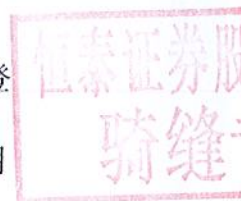 恒泰证券股
骑缝